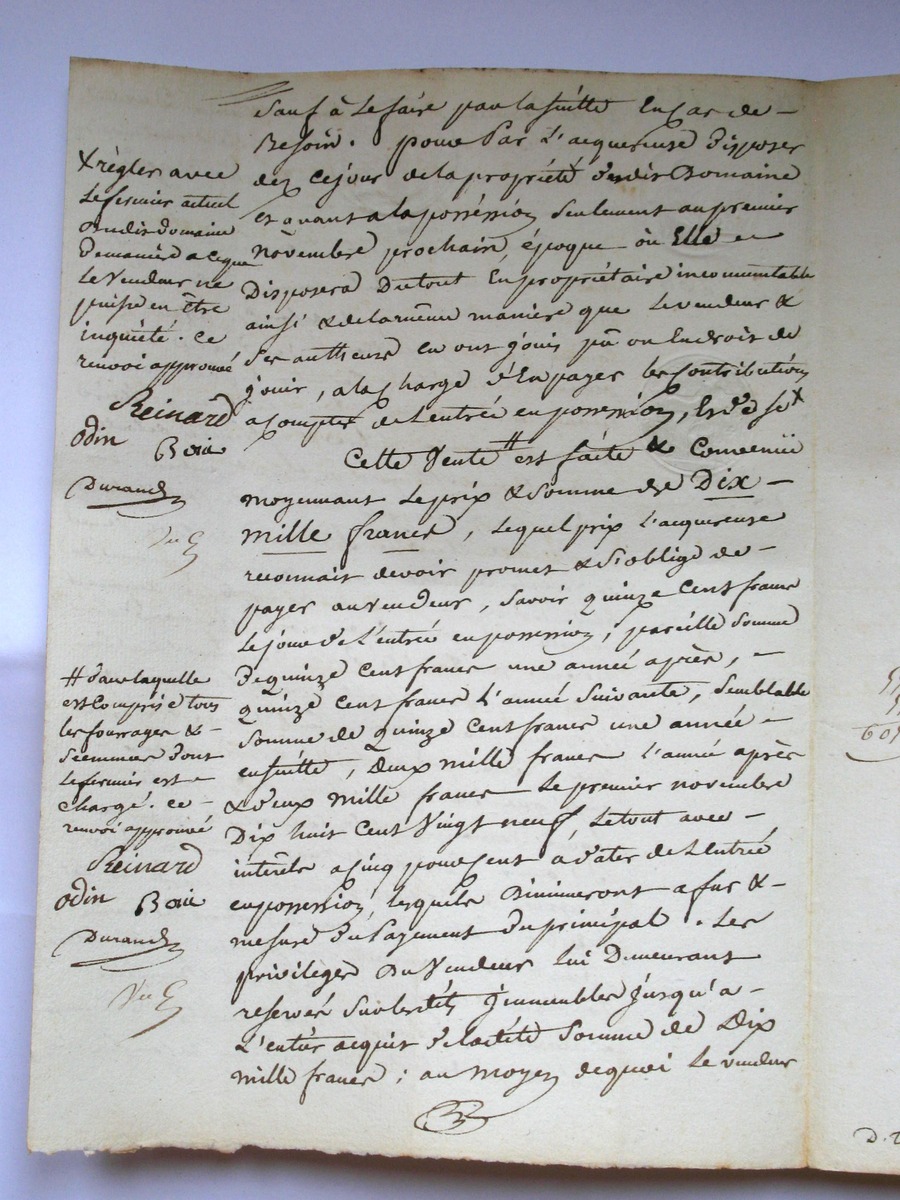 Sauf à le faire par la suitte en cas de
Besoin. pour par l'acquereuse Disposer
dez ce jour de la propriété dudit Domaine
et quant a la possession seulement au premier
novembre prochain, époque où Elle en
Disposera Du tout En propriétaire incommutable
ainsi & de la meme maniere que le vendeur &
Ses autheurs en ont joui pû ou En droit de
jouir, a la charge d'En payer les Contributions
a Compter de l'entrée en possession, Et de se X
Cette Vente # est faite & Convenüe
moyennant le prix & somme de Dix
mille francs, lequel prix l'acquereuse
reconnait devoir promet & S'oblige de
payer au vendeur, savoir quinze Cent francs
le jour de l'entrée en possession, pareille somme
de quinze Cent francs une année après,
quinze Cent francs l'année suivante, semblable
somme de quinze Cent francs une année
ensuitte, deux mille francs l'année après
& deux mille francs le premier novembre
Dix huit Cent Vingt neuf, le tout avec
intérêts a cinq pour Cent a dater de l'Entrée
en possession, lesquels Diminueront a fur &
mesure du Payement du principal. Les
privilèges Du Vendeur lui Demeurant
reservés sur lesdits Jmmeubles Jusqu'a
l'entier acquit de ladite somme de Dix
mille francs; au moyen de quoi le vendeur
X règler avec
le fermier actuel
dudit Domaine
De maniere a ce que
le Vendeur ne
puisse en être
inquiété. Ce
renvoi approuvé
Reinard
odin Boie
Durand
# dans laquelle
est Comprise tous
les fourrages &
Semences dont
le fermier est
Chargé. Ce
renvoi approuvé
Reinard
odin Boie
Durand